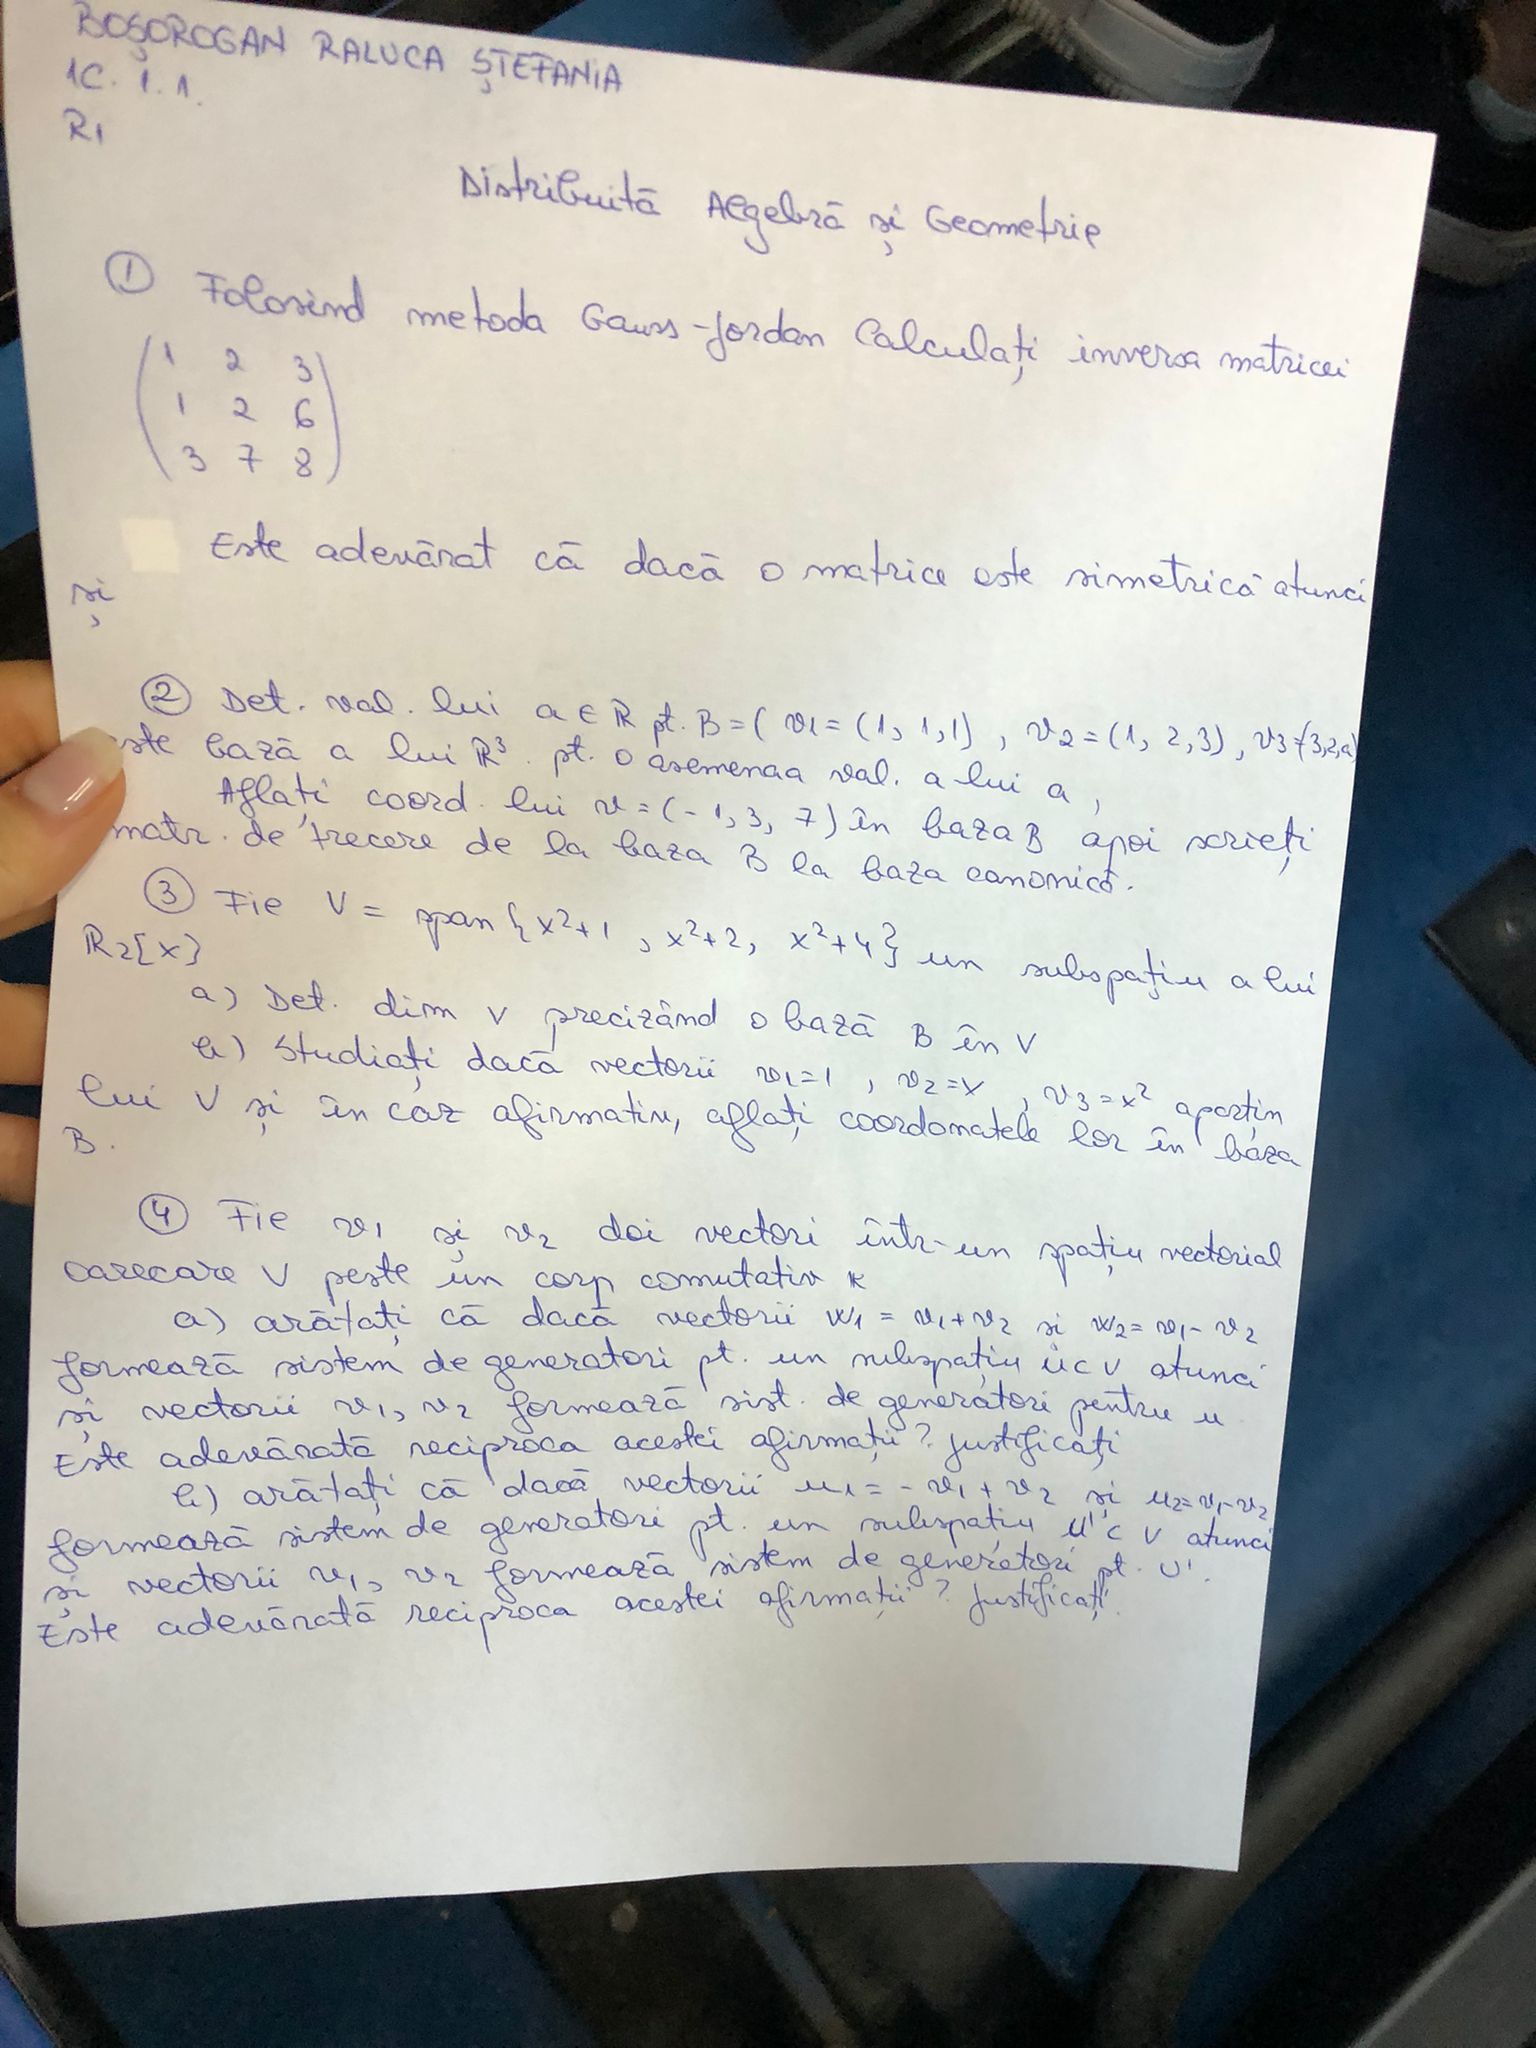 BOȘOROGAN RALUCA ȘTEFANIA
1C. 1.1.
R1
Distribuită Algebră și Geometrie
① Folosind metoda Gauss-Jordan Calculați inversa matricei
1 2 3
1 2 6
3 7 8
Este adevărat că dacă o matrice este simetrică atunci
și
② Det. val. lui a ∈ R pt. B = ( v1 = (1, 1, 1) , v2 = (1, 2, 3) , v3=(3,2,a)
este bază a lui R³. pt. o asemenaa val. a lui a,
Aflați coord. lui v = (-1, 3, 7) în baza B apoi scrieți
matr. de trecere de la baza B la baza canonică.
③ Fie V = span { x²+1 , x²+2, x²+4 } un subspațiu a lui
R2[x]
a) Det. dim V precizând o bază B în V
b) Studiați dacă vectorii v1=1 , v2=x , v3=x² aparțin
lui V și în caz afirmativ, aflați coordonatele lor în baza
B.
④ Fie v1 și v2 doi vectori într-un spațiu vectorial
oarecare V peste un corp comutativ K
a) arătați că dacă vectorii w1 = v1+v2 și w2= v1- v2
formează sistem de generatori pt. un subspațiu U⊂V atunci
și vectorii v1, v2 formează sist. de generatori pentru u
Este adevărată reciproca acestei afirmații? Justificați
b) arătați că dacă vectorii u1 = - v1 + v2 și u2=v1-v2
formează sistem de generatori pt. un subspațiu U' ⊂ V atunci
și vectorii v1, v2 formează sistem de generatori pt. U'.
Este adevărată reciproca acestei afirmații? Justificați.